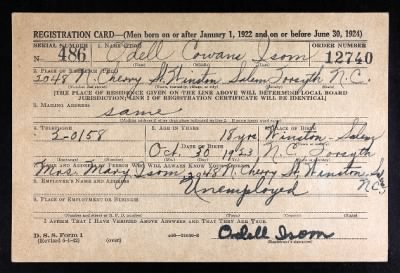 REGISTRATION CARD—(Men born on or after January 1, 1922 and on or before June 30, 1924)
SERIAL NUMBER 1. NAME (Print) ORDER NUMBER
N 486 Odell Cowans Isom 12740
2. PLACE OF RESIDENCE (Print)
2048 N. Cherry St. Winston Salem Forsyth N.C.
(Number and street) (Town, township, village, or city) (County) (State)
[THE PLACE OF RESIDENCE GIVEN ON THE LINE ABOVE WILL DETERMINE LOCAL BOARD
JURISDICTION; LINE 2 OF REGISTRATION CERTIFICATE WILL BE IDENTICAL]
3. MAILING ADDRESS
same
4. TELEPHONE 5. AGE IN YEARS 6. PLACE OF BIRTH
2-0158 18 yrs. Winston-Salem
DATE OF BIRTH
Oct 30 1923 N.C. Forsyth
(Exchange) (Number) (Mo.) (Day) (Yr.)
7. NAME AND ADDRESS OF PERSON WHO WILL ALWAYS KNOW YOUR ADDRESS
Mrs. Mary Isom, 2048 N. Cherry St. Winston, S. N.C.
8. EMPLOYER'S NAME AND ADDRESS
Unemployed
9. PLACE OF EMPLOYMENT OR BUSINESS
(Number and street or R. F. D. number) (Town) (County) (State)
I AFFIRM THAT I HAVE VERIFIED ABOVE ANSWERS AND THAT THEY ARE TRUE.
D. S. S. Form 1
(Revised 6-1-42) (over) Odell Isom